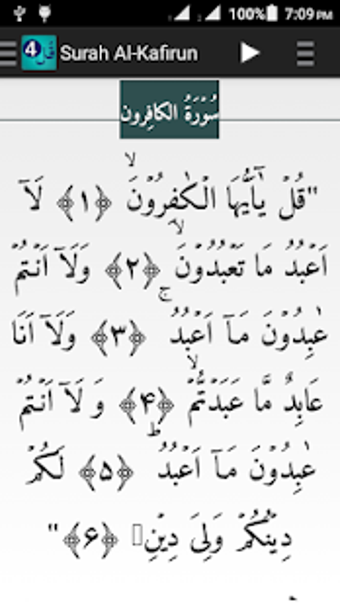 100% 7:09PM
4 قل Surah Al-Kafirun
سُوْرَةُ الكافِرون
"قُلْ يٰٓاَيُّهَا الْكٰفِرُوْنَ ۙ ﴿۱﴾ لَاۤ
اَعْبُدُ مَا تَعْبُدُوْنَ ۙ ﴿۲﴾ وَلَاۤ اَنْـتُمْ
عٰبِدُوْنَ مَاۤ اَعْبُدُ ۚ ﴿۳﴾ وَلَاۤ اَنَا
عَابِدٌ مَّا عَبَدْتُّمْ ۙ ﴿۴﴾ وَ لَاۤ اَنْـتُمْ
عٰبِدُوْنَ مَاۤ اَعْبُدُ ؕ ﴿۵﴾ لَكُمْ
دِيْنُكُمْ وَلِىَ دِيْنِ ﴿۶﴾"